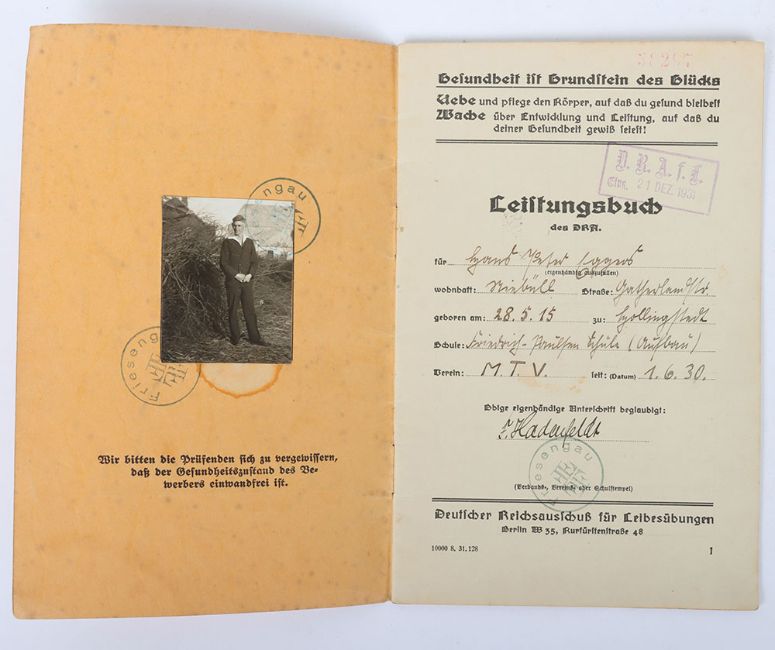 Friesengau
Friesengau
Wir bitten die Prüfenden sich zu vergewissern,
daß der Gesundheitszustand des Be-
werbers einwandfrei ist.
Gesundheit ist Grundstein des Glücks
Uebe und pflege den Körper, auf daß du gesund bleibest
Wache über Entwicklung und Leistung, auf daß du
deiner Gesundheit gewiß seiest!
D. R. A. f. L.
Eing. 21 DEZ. 1931
Leistungsbuch
des DRA.
für Hans Peter Eggers
(eigenhändig auszufüllen)
wohnhaft: Niebüll Straße: Gatherlandstr.
geboren am: 28.5.15 zu: Hollingstedt
Schule: Friedrich-Paulsen Schule (Aufbau)
Verein: M.T.V. seit: (Datum) 1.6.30.
Obige eigenhändige Unterschrift beglaubigt:
Hadenfeldt
Friesengau
(Verbands-, Vereins- oder Schulstempel)
Deutscher Reichsausschuß für Leibesübungen
Berlin W 35, Kurfürstenstraße 48
10000 8. 31. 128
1